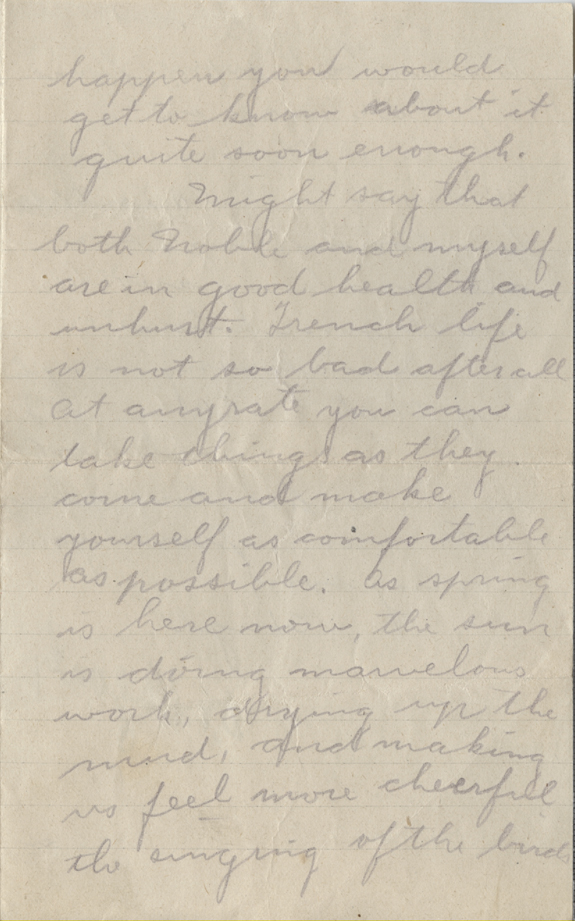 happen you would
get to know about it
quite soon enough.
Might say that
both Noble and myself
are in good health and
unhurt. Trench life
is not so bad after all
at anyrate you can
take things as they
come and make
yourself as comfortable
as possible. As spring
is here now, the sun
is doing marvelous
work, drying up the
mud, and making
us feel more cheerful
the singing of the birds